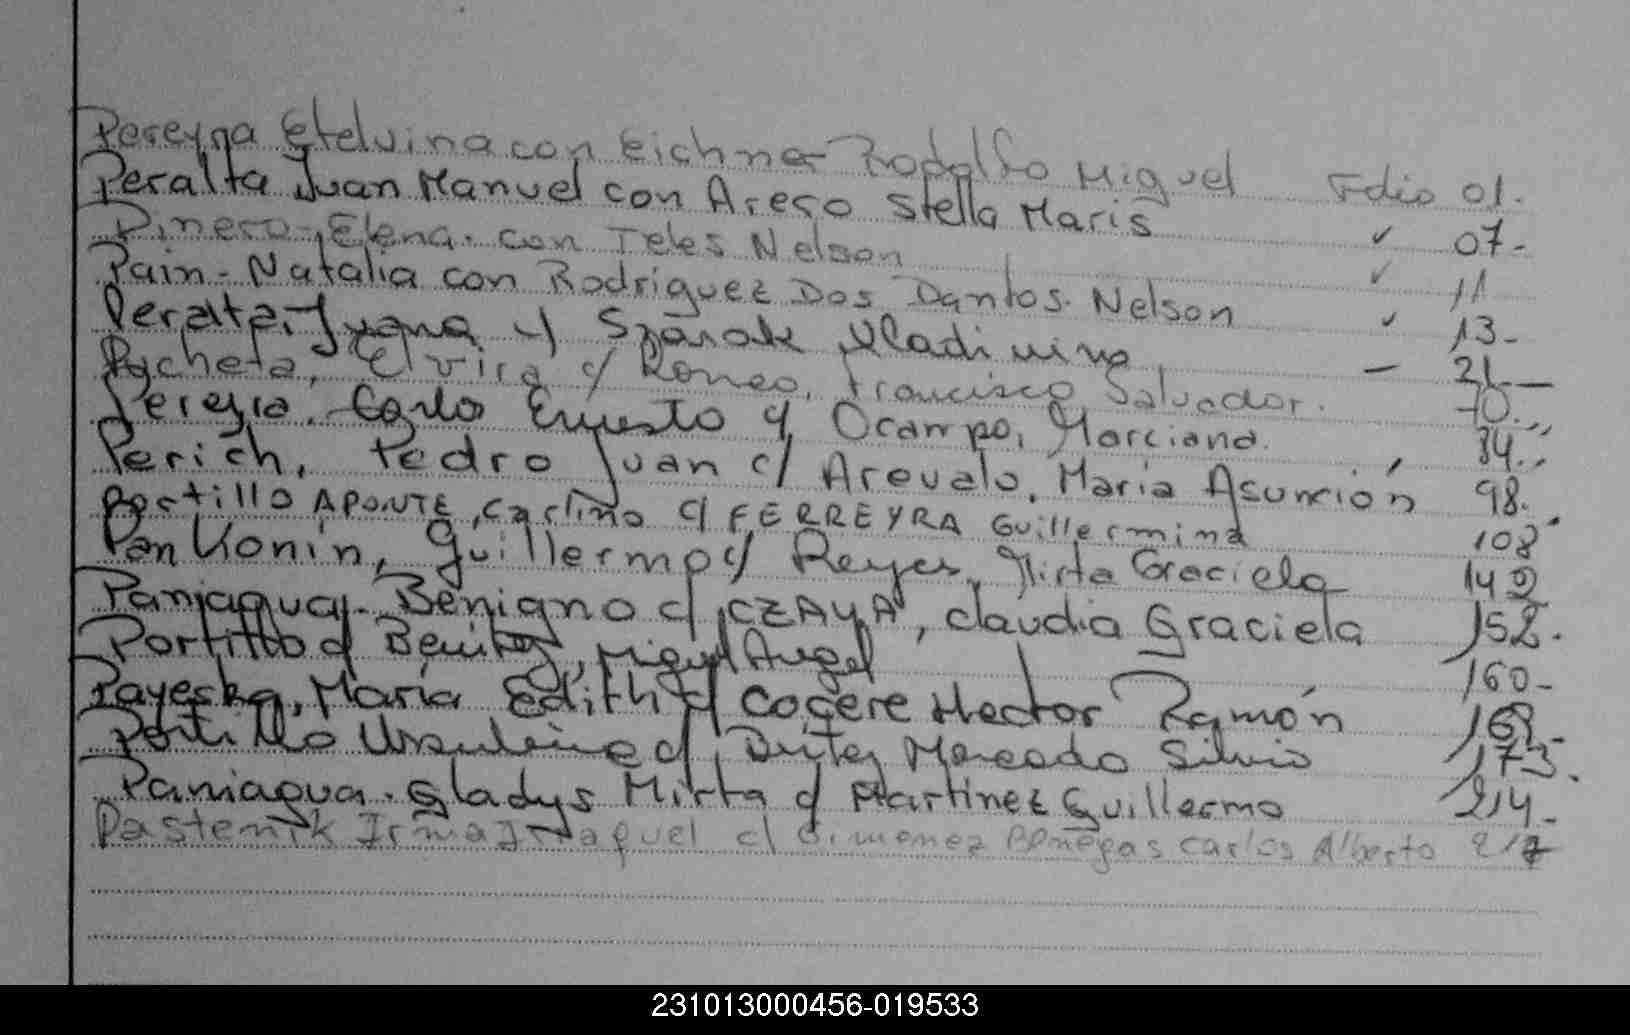 Pereyra Etelvina con Eichner Rodolfo Miguel Folio 01.
Peralta Juan Manuel con Areco Stella Maris ✓ 07-
Pinero, Elena. con Teles Nelson ✓ 11
Pain- Natalia con Rodriguez Dos Dantos. Nelson ✓ 13-
Peralta, Juana y Szarak Vladimiro — 21—
Pacheta, Elvira c/ Romeo, Francisco Salvador. 70."
Pereyra. Carlos Ernesto y Ocampo, Marciana. 84."
Perich, Pedro Juan c/ Arevalo, Maria Asunción 98.
Portillo APONTE, Carlino c/ FERREYRA Guillermina 108
Pankonin, Guillermo c/ Reyes, Mirta Graciela 142
Paniagua. Benigno c/ CZAYA, claudia Graciela 152.
Portillo c/ Benitez, Miguel Angel 160-
Payeska, María Edith c/ Cocere Hector Ramón 169-
Portillo Ursulina c/ Mercado Silvio 173.
Paniagua. Gladys Mirta c/ Martinez Guillermo 214-
Pastenik Irma Raquel c/ Gimenez Benegas Carlos Alberto 217
231013000456-019533